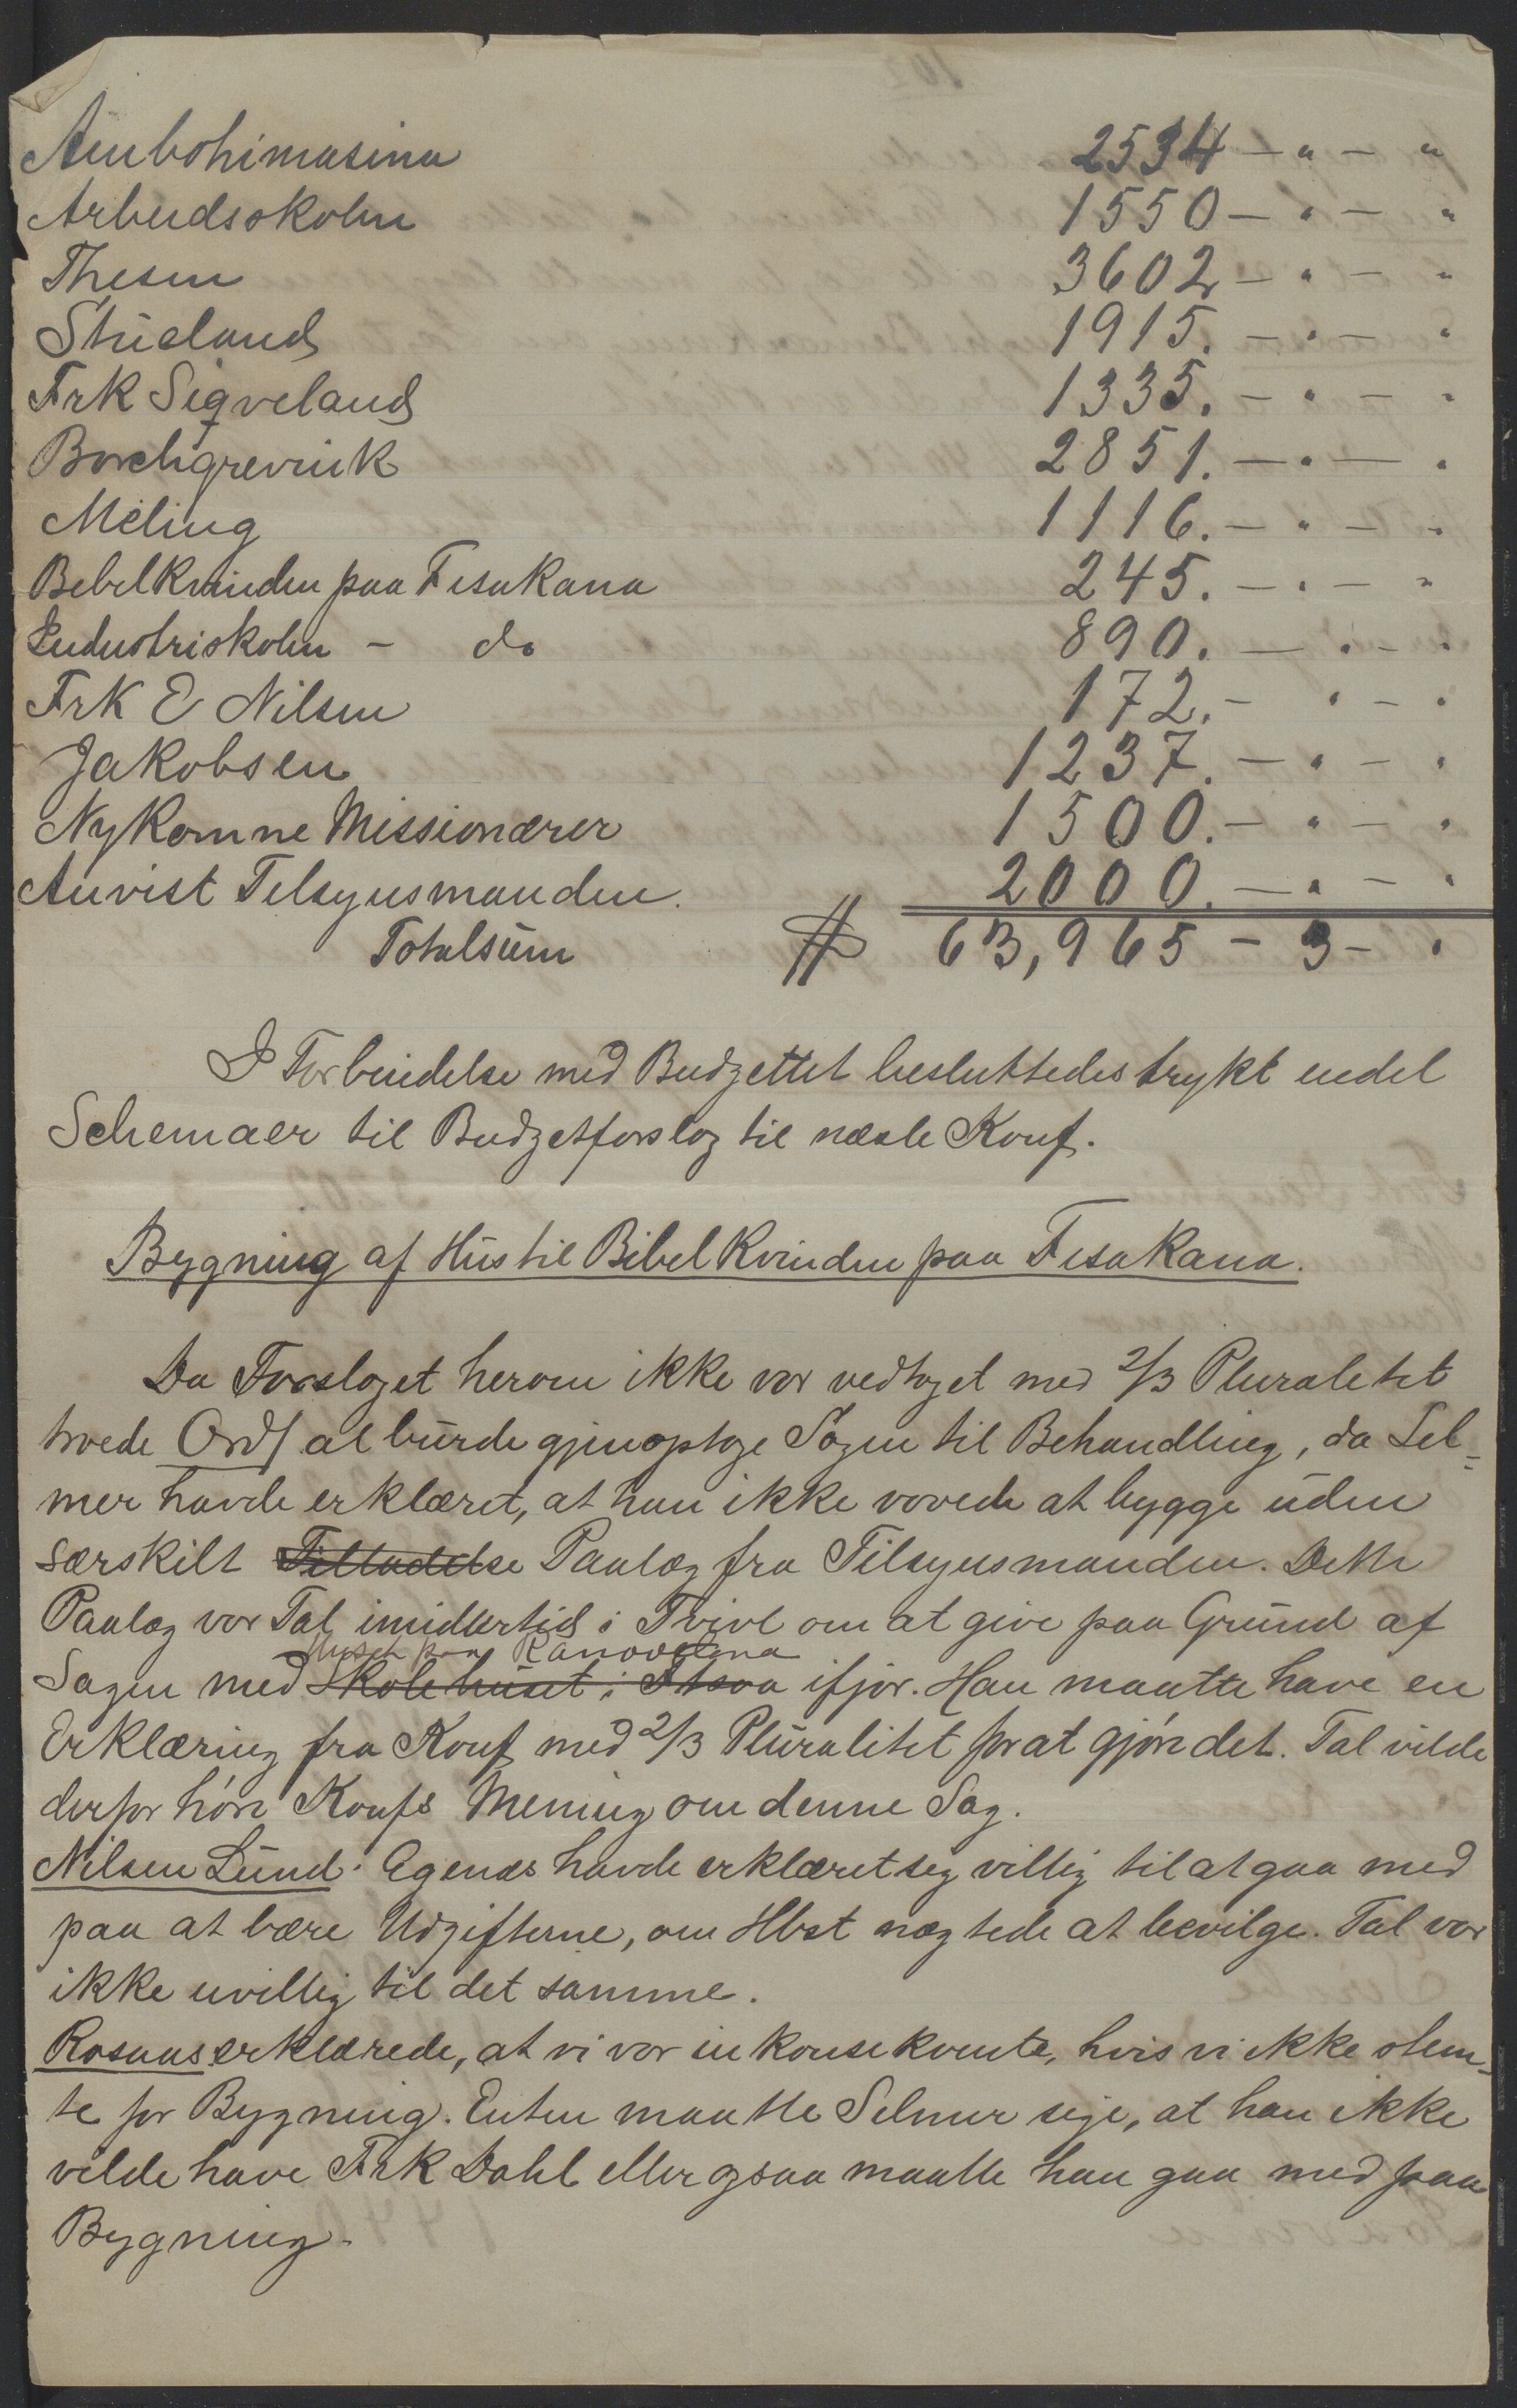 Ambohimasina 2534 - " - "
Arbeidsskolen 1550 - " - "
Thesen 3602 - " - "
Stueland 1915. - " - "
Frk Sigveland 1335. - " - "
Borchgrevink 2851. - " - "
Meling 1116. - " - "
Bebelkvinden paa Fisakana 245. - " - "
Industriskolen - do 890. - " - "
Frk E Nilsen 172. - " - "
Jakobsen 1237. - " - "
Nykomne Missionærer 1500. - " - "
Anvist Tilsynsmanden. 2000. - " - "
Totalsum 63,965 - 3 - "
I Forbindelse med Budgettet besluttedes trykt endel
Schemaer til Budgetforslag til næste Konf.
Bygning af Hus til Bibelkvinden paa Fisakana.
Da Forslaget herom ikke var vedtaget med 2/3 Pluralitet
troede Ordf at burde gjenoptage Sagen til Behandling, da Sel-
mer havde erklæret, at han ikke vovede at bygge uden
særskilt Tilladelse Paalæg fra Tilsynsmanden. Dette
Paalæg var Tal imidlertid i Tvivl om at give paa Grund af
Huset paa Ranovelona
Sagen med Skolehuset i ifjor. Han maatte have en
Erklæring fra Konf med 2/3 Pluralitet for at gjøre det. Tal vilde
derfor høre Konfs Mening om denne Sag.
Nilsen Lund: Egenæs havde erklæret sig villig til at gaa med
paa at bære Udgifterne, om Hbst nægtede at bevilge. Tal var
ikke uvillig til det samme.
Rosaas erklærede, at vi var inkonsekvente, hvis vi ikke stem-
te for Bygning. Enten maatte Selmer sige, at han ikke
vilde have Frk Dahl eller ogsaa maatte han gaa med paa
Bygning.